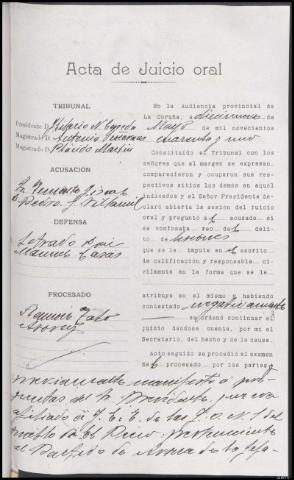 Acta de Juicio oral
TRIBUNAL
Presidente D. Hilario N. Cepeda
Magistrado D. Antonio
Magistrado D. Plácido Martín
ACUSACION
Sr. Teniente Fiscal
D. Pedro
DEFENSA
Letrado Don
Manuel Casás
PROCESADO
Manuel
En la Audiencia provincial de
La Coruña, a diecinueve de
Mayo de mil novecientos
cuarenta y uno
Constituido el Tribunal con los
señores que al margen se expresan,
comparecieron y ocuparon sus res-
pectivos sitios los demás en aquél
indicados y el Señor Presidente de-
claró abierta la sesión del juicio
oral y preguntó al acusado si
se confesaba reo del deli-
to de lesiones
que se le imputa en el escrito
de calificación y responsable, ci-
vilmente en la forma que se le
atribuye en el mismo y habiendo
contestado negativamente
se ordenó continuar el
juicio dándose cuenta, por mí el
Secretario, del hecho y de la causa.
Acto seguido se procedió al examen
del procesado por las partes y
manifestó a pre-
guntas del Sr. Presidente, que
afiliado a F. E. T. de las J.O.N.S. del
pueblo de El Pino, perteneciente
al Partido de Arzúa de la